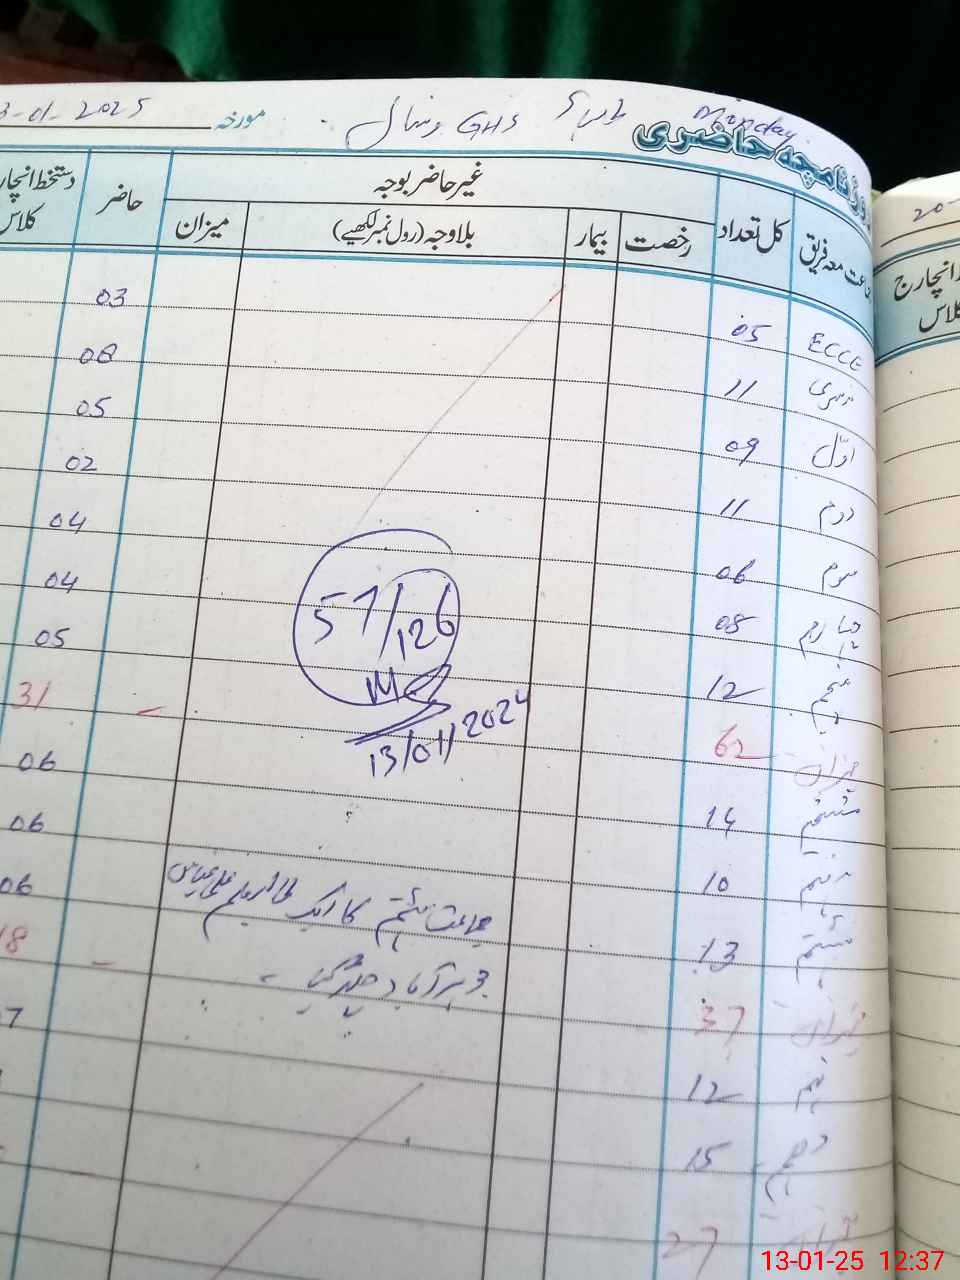 Monday
روزنامچہ حاضری
GHS
مورخہ 3-01-2025
جماعت معہ فریق کل تعداد غیر حاضر بوجہ حاضر دستخط انچارج کلاس
رخصت بیمار بلاوجہ (رول نمبر لکھیے) میزان
ECCE 05 03
نرسری 11 08
اوّل 09 05
دوم 11 02
سوم 06 04
چہارم 08 04
پنجم 12 05
میزان 62 31
ششم 14 06
ہفتم 10 06
ہشتم 13 06
میزان 37 18
نہم 12
دہم 15
میزان 27
57/126
13/01/2024
جماعت ہشتم کا ایک
چلا گیا
20-
انچارج
کلاس
13-01-25 12:37